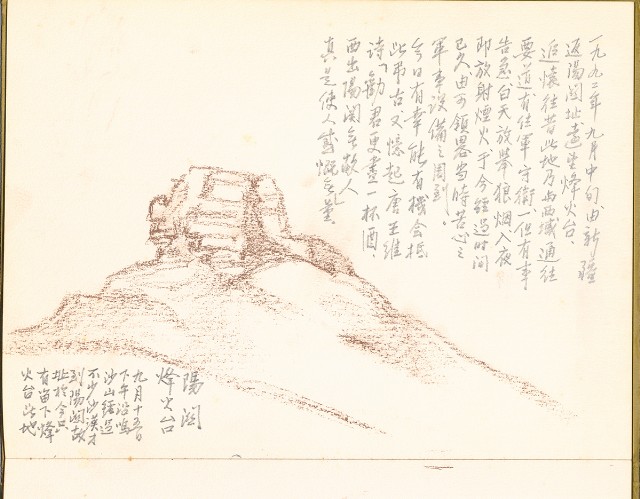 一九九二年九月中旬由新疆
返陽関址遠望烽火台、
追懷往昔此地乃為西域通往
要道有住軍守衛一但有事
告急白天放举狼烟入夜
即放射煙火于今經過时间
已久由可領畧当時苦心之
軍事設備之周到、
今日有幸能有機会抵
此吊古又憶起唐王維
诗「勸君更盡一杯酒、
西出陽関無故人」
真是使人感慨無量
陽関
烽火台
九月十五日
下午沿鳴
沙山經過
不少沙漠才
到陽関故
址於今只
有留下烽
火台此地